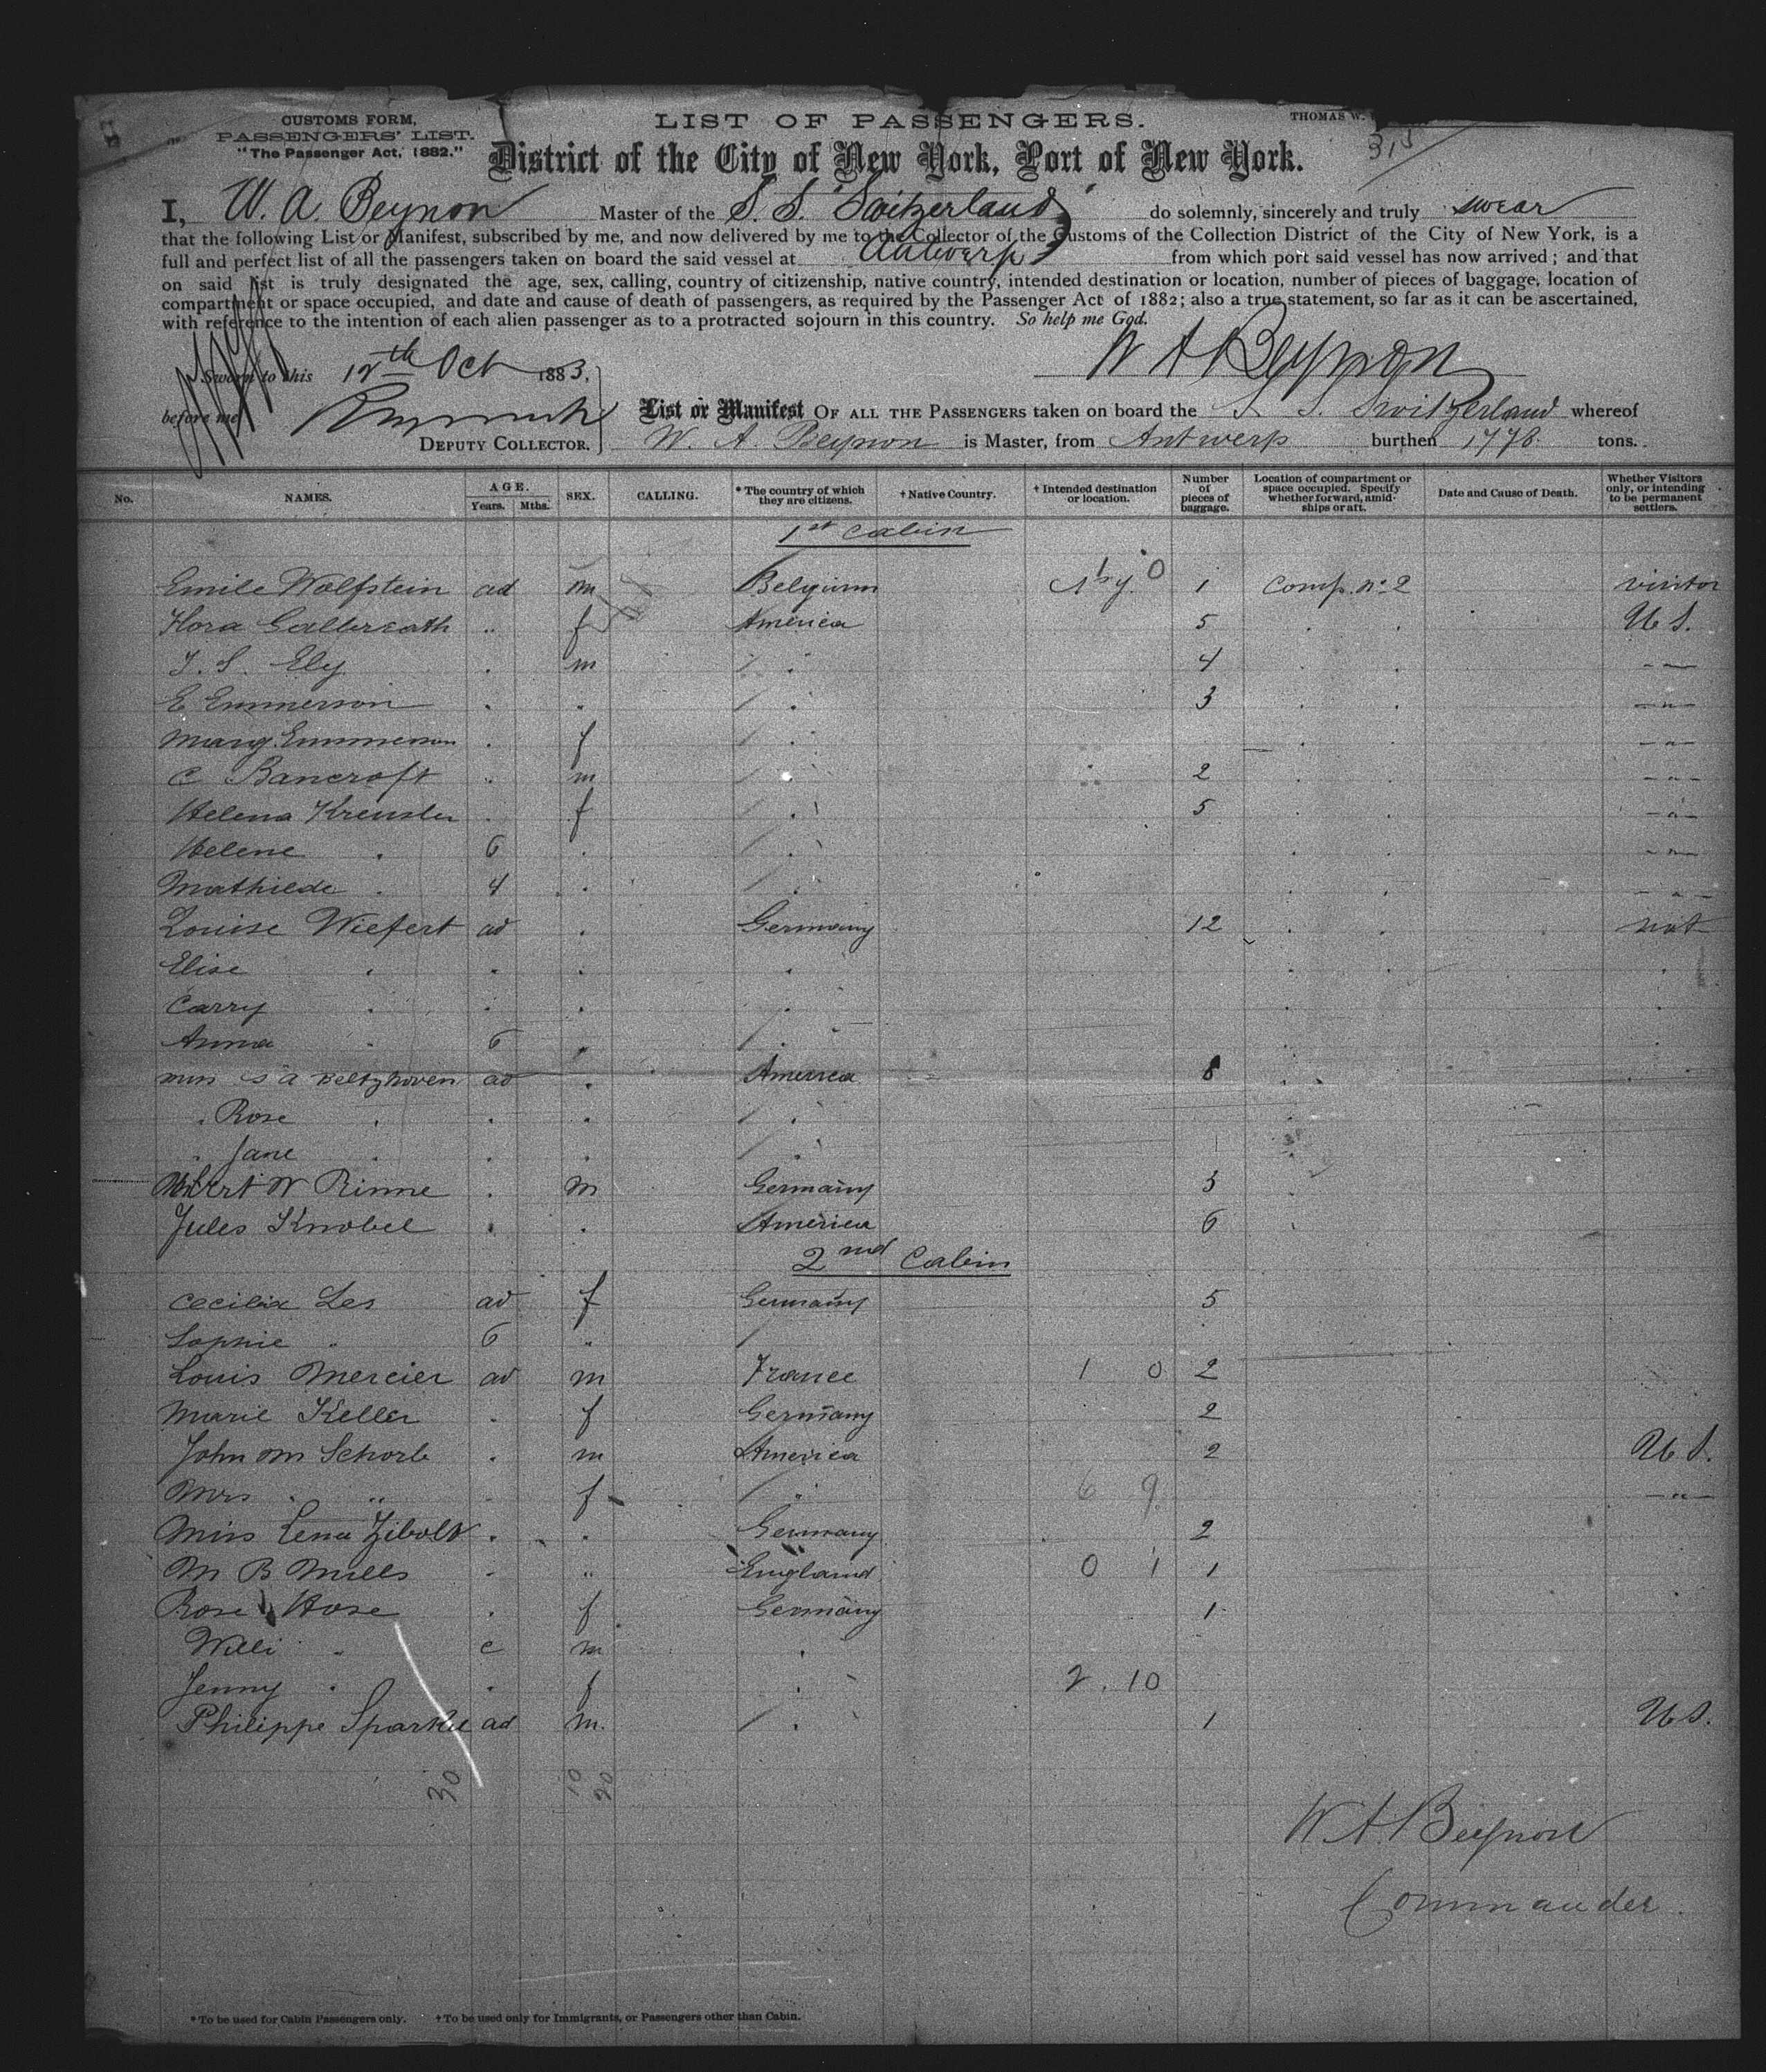 CUSTOMS FORM,
PASSENGERS' LIST.
"The Passenger Act, 1882."
LIST OF PASSENGERS.
THOMAS W.
315
District of the City of New York, Port of New York.
I, W. A. Beynon Master of the S. S. "Switzerland" do solemnly, sincerely and truly swear
that the following List or Manifest, subscribed by me, and now delivered by me to the Collector of the Customs of the Collection District of the City of New York, is a
full and perfect list of all the passengers taken on board the said vessel at Antwerp from which port said vessel has now arrived; and that
on said list is truly designated the age, sex, calling, country of citizenship, native country, intended destination or location, number of pieces of baggage, location of
compartment or space occupied, and date and cause of death of passengers, as required by the Passenger Act of 1882; also a true statement, so far as it can be ascertained,
with reference to the intention of each alien passenger as to a protracted sojourn in this country. So help me God.
Sworn to this 12th Oct 1883, W A Beynon
before me
DEPUTY COLLECTOR.
List or Manifest OF ALL THE PASSENGERS taken on board the S. S. Switzerland whereof
W. A. Beynon is Master, from Antwerp burthen 1778. tons.
No. NAMES. AGE. Years. Mths. SEX. CALLING. * The country of which they are citizens. † Native Country. † Intended destination or location. Number of pieces of baggage. Location of compartment or space occupied. Specify whether forward, amidships or aft. Date and Cause of Death. Whether Visitors only, or intending to be permanent settlers.
1st cabin
Emile Wolfstein ad m Belgium 1 0 1 Comp. no 2 visitor
Flora Galbreath " f America 5 U S.
T. S. Ely . m " 4 -"-
E Emmerson . . " 3 -"-
Mary Emmerson . f " -"-
C Bancroft " m " 2 -"-
Helena Kreusler . f " 5 -"-
Helene " 6 . " -"-
Mathiede " 4 . " -"-
Louise Wiefert ad . Germany 12 not
Elise " . . "
Carry " . . "
Anna " 6 . "
ad . America 8
" Rose " . . "
" Jane " . . "
W Rinne . m Germany 3
Jules Knobel . . America 6
2nd Cabin
Cecilia Les ad f Germany 5
Sophie " 6 "
Louis Mercier ad m France 1 0 2
Marie Keller . f Germany 2
John M Schorb . m America 2 U S.
Mrs " " . f " 6 9 -"-
Miss Lena Zibolt . . Germany 2
M B Mills . " England 0 1 1
Rose Hose . f Germany 1
Willi " c m "
Jenny " . f " 2 . 10
Philippe ad m. " 1 U S.
30 10 20
W. A. Beynon
Commander
* To be used for Cabin Passengers only. † To be used only for Immigrants, or Passengers other than Cabin.